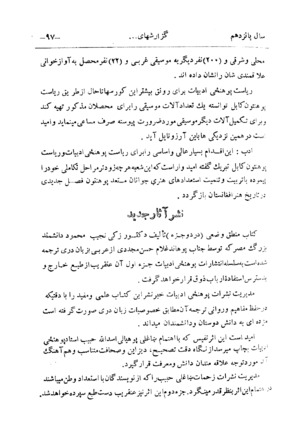 سال پانزدهم گزارشهای... —۹۷—
محلی وشرقی و (۲۰۰) نفر دیگر به موسیقی غربی و (۲۲) نفر محصل به آواز خوانی
علاقمندی شان رانشان داده اند .
ریاست پوهنځی ادبیات برای رونق بیشتر این کورسها تاحال از طریق ریاست
پوهنتون کابل توانسته یک تعداد آلات موسیقی را برای محصلان مذکور تهیه کند
و برای تکمیل آلات دیگر موسیقی مورد ضرورت پیوسته صرف مساعی مینماید و امید
است در همین نزدیکی ها باین آرزو نایل آید .
ادب : این اقدام بسیار عالی واساسی را برای ریاست پوهنځی ادبیات وریاست
پوهنتون کابل تبریک گفته امید وار است که این شعبه هرچه زودتر مراحل تکاملی خود را
پیموده باتربیت وتنمیت استعدادهای هنری جوانان مستعد پوهنتون فصل جدیدی
در تاریخ هنر افغانستان باز گردد .
نشر آثار جدید
کتاب منطق وضعی (در دو جزء) تألیف دکتور زکی نجیب محمود دانشمند
بزرگ مصر که توسط جناب پوهاند غلام حسن مجددی از عربی بزبان دری ترجمه
شده است بسلسله انتشارات پوهنځی ادبیات جزء اول آن عنقریب از طبع خارج و
بدسترس استفاده ارباب ذوق قرار خواهد گرفت .
مدیریت نشرات پوهنځی ادبیات خبر نشر این کتاب علمی و مفید را با دقتیکه
در حفظ مفاهیم وروانی ترجمه آن مطابق خصوصیات زبان دری صورت گرفته است
مژده ای به دانش دوستان ودانشمندان میداند .
امید است این اثر نفیس که با اهتمام ښاغلی پوهیالی اسدالله حبیب استاد پوهنځی
ادبیات بچاپ میرسد از نگاه دقت تصحیح، دیزاین وصحافت متناسب و هم آهنگ
آن مورد توجه علاقه مندان دانش ومعرفت قرار گیرد .
مدیریت نشرات زحمات ښاغلی حبیب را که از نویسندگان با استعداد وطن میباشند
در اهتمام این اثر بنظر قدر مینگرد. جزء دوم این اثر نیز عنقریب به دست طبع سپرده خواهد شد.